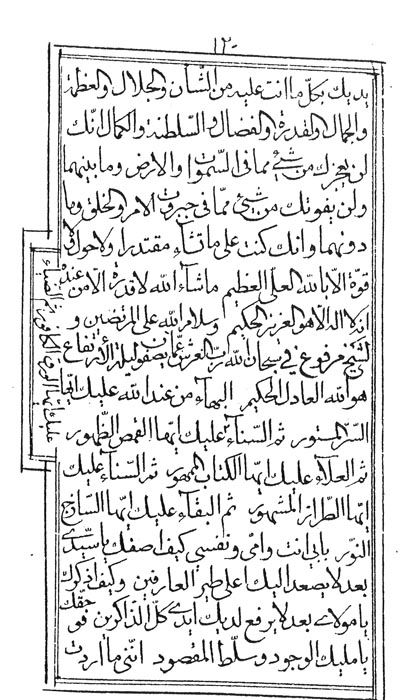 ١٢٠
يديك بكلّ ما انت عليه من الشّأن والجلال والعظمة
والجمال والقدرة والفضال والسّلطنة والكمال انّك
لن يعجزك من شیئ ممّا فی السّموات والارض وما بينهما
ولن يفوتك من شیئ ممّا فی جبروت الامر والخلق وما
دونهما وانك كنت علی ما تشآء مقتدرا ولا حول ولا
قوّة الّا بالله العلی العظيم ما شآء الله لا قدرة الّا من عنده
لا اله الّا هو العزيز الحكيم وسلام الله علی المرتضين و
لشيخ مرفوع فی سبحان الله ربّ العرش عمّا يصفو ليلة الارتفاع
هو الله العادل الحكيم البهآء من عند الله عليك ايّها
السّرّ المستور ثم السّنآء عليك ايّها القمص الظّهور
ثم العلآء عليك ايّها الكتاب الممهور ثم السّنآء عليك
ايّها الطّراز المشهور ثم البقآء عليك ايّها السّاذج
النّور بابی انت وامّی ونفسی كيف اصفك يا سيّدی
بعد لا يصعد اليك اعلی طير العارفين وكيف اذكرك
يا مولای بعد لا يرفع لديك ايدی كلّ الذاكرين فو حقّك
يا مليك الوجود وسلّط المقصود انّنی ما اردت
ثم الضّيآء
عليك ايّها الورق الكافور